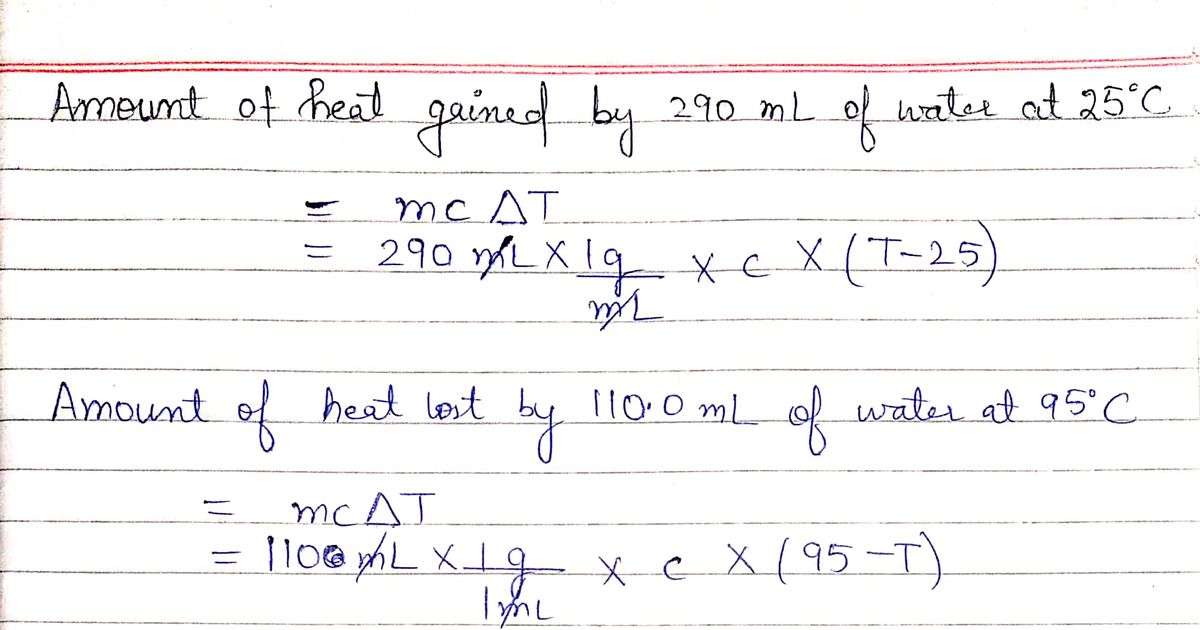 Amount of heat gained by 290 mL of water at 25°C
= mc ΔT
= 290 mL X 1g/mL X c X (T-25)
Amount of heat lost by 110.0 mL of water at 95°C
= mcΔT
= 1100 mL X 1g/1mL X c X (95-T)